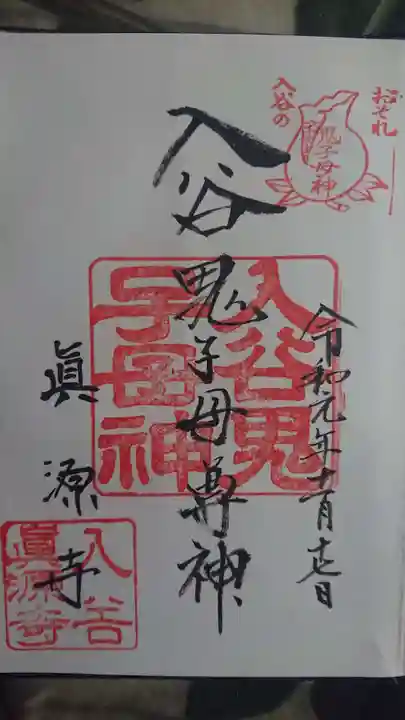 おそれ
入谷の
鬼子母神
入谷鬼子母尊神
入谷鬼
子母神
令和元年
眞源寺
入谷
眞源寺